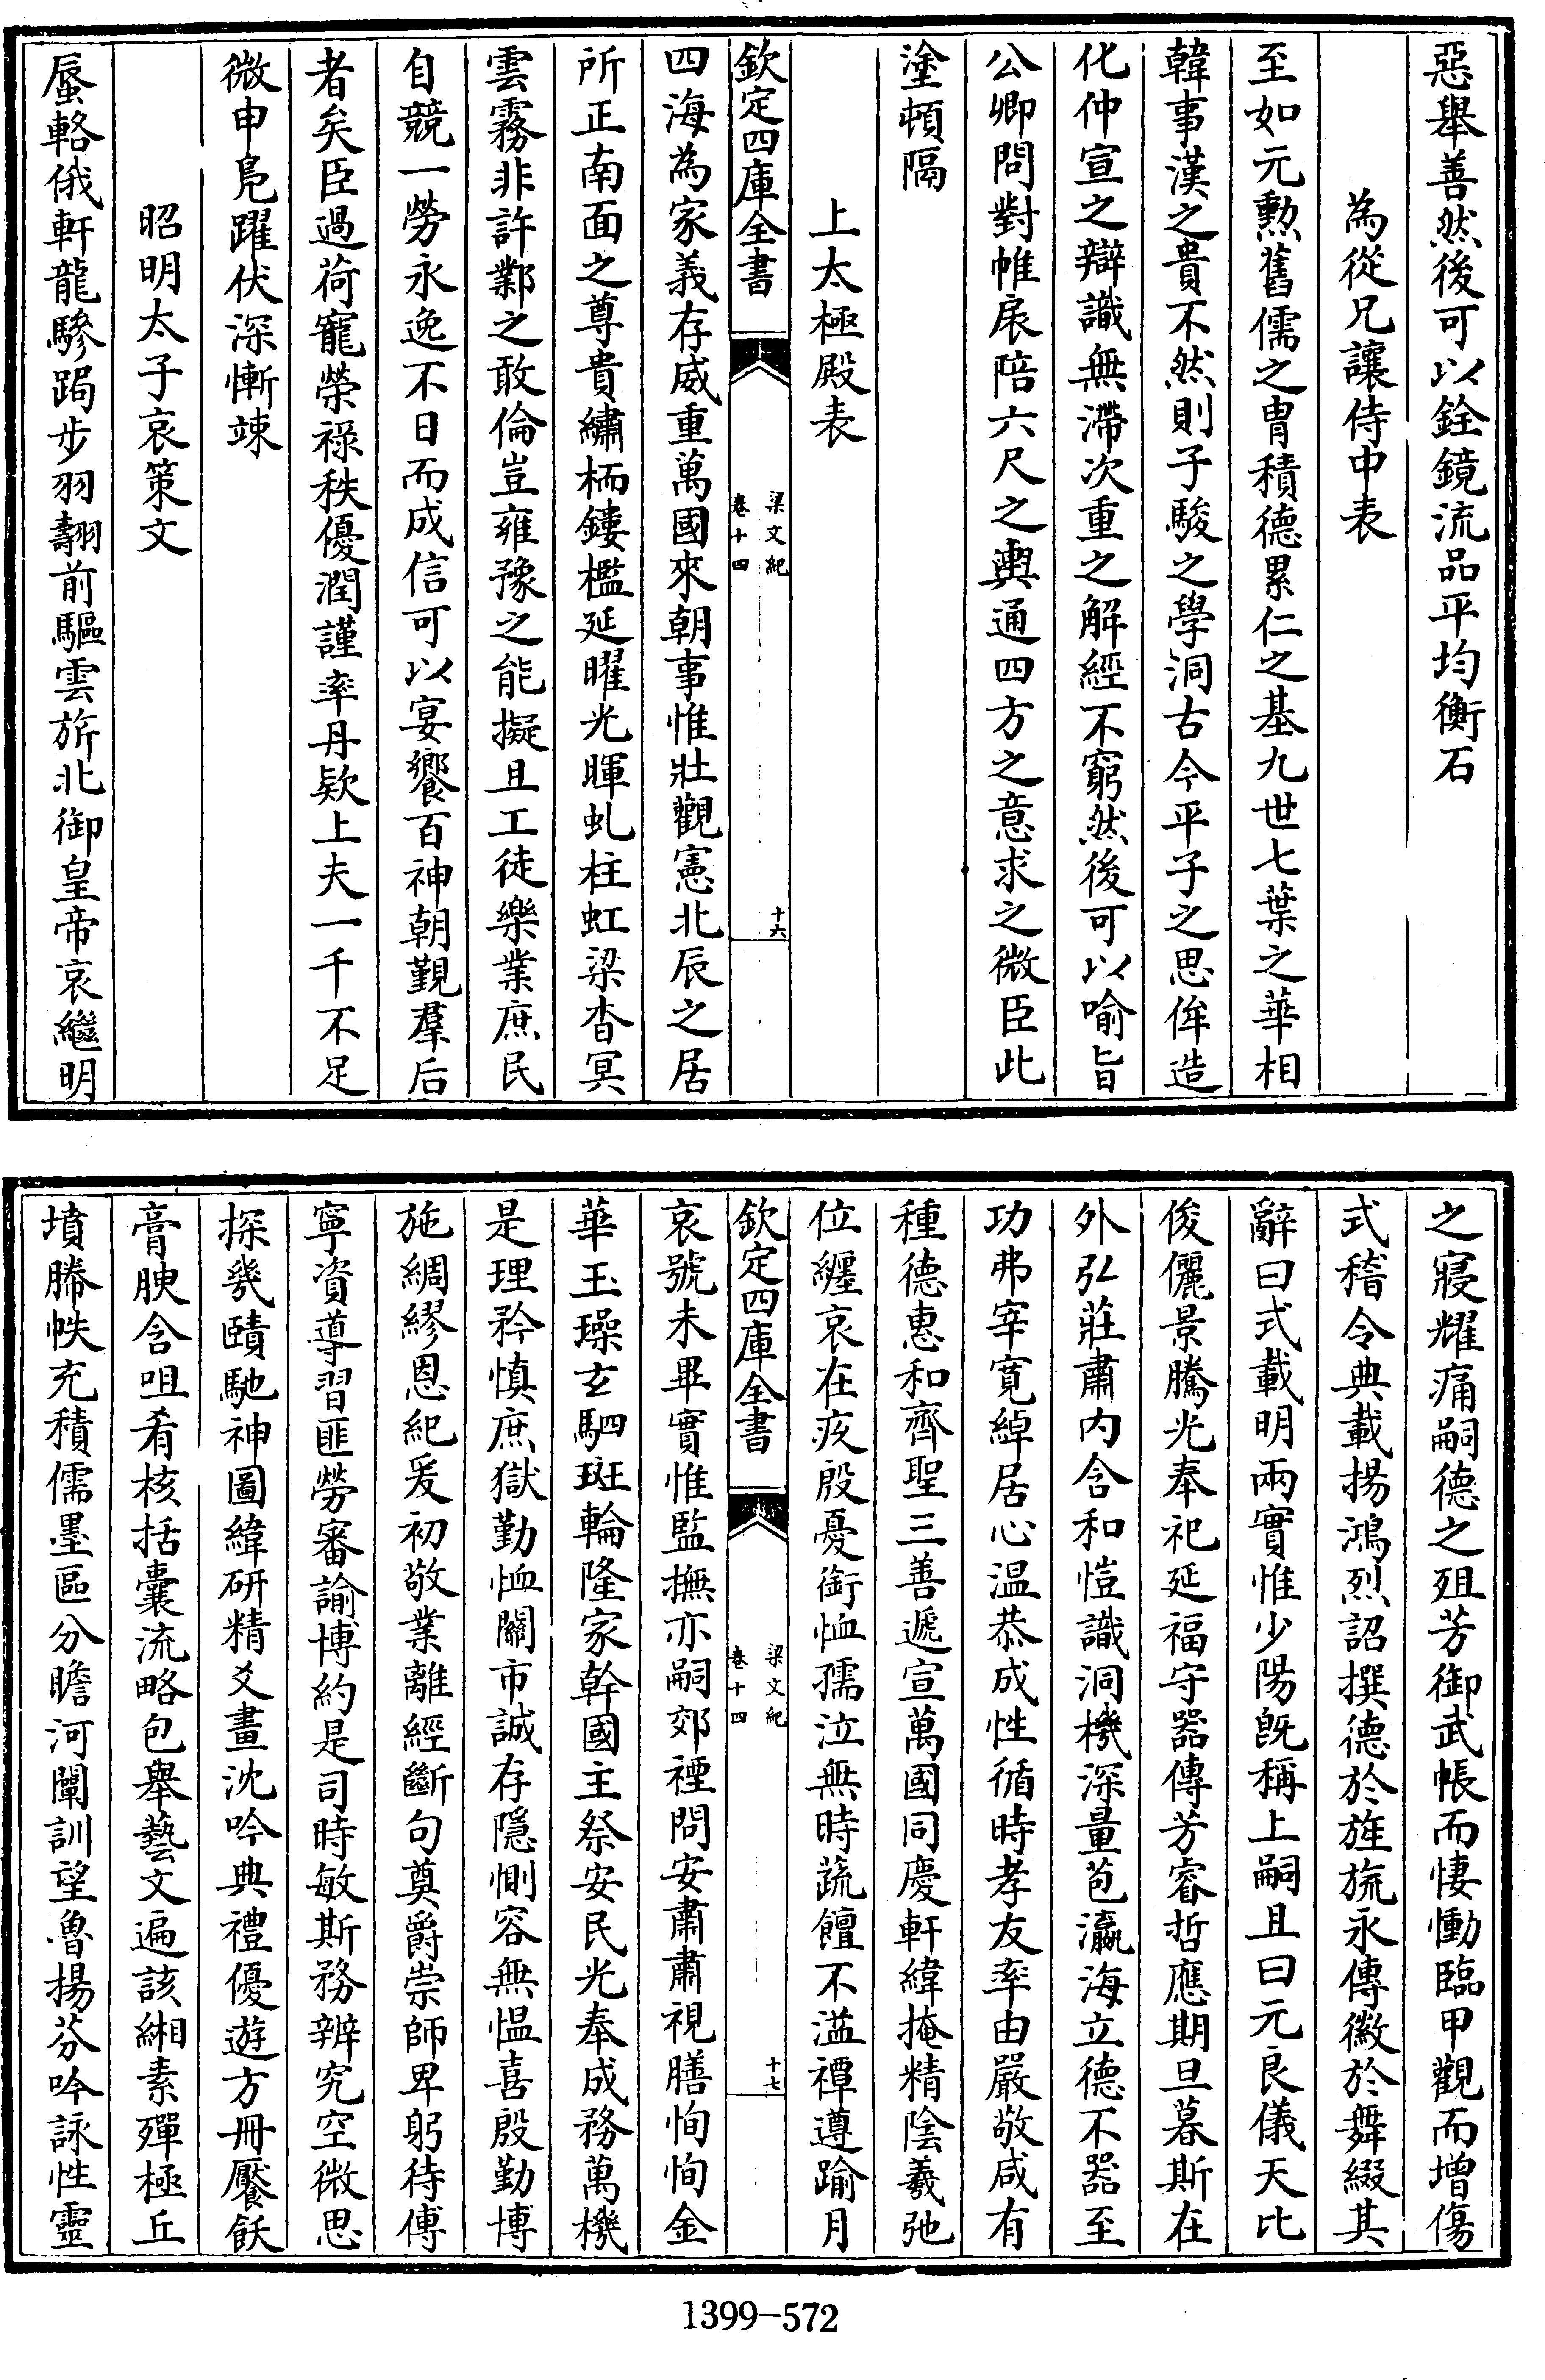 惡舉善然後可以銓鏡流品平均衡石
為從兄讓侍中表
至如元勲舊儒之胄積德累仁之基九世七葉之華相
韓事漢之貴不然則子駿之學洞古今平子之思侔造
化仲宣之辯識無滯次重之解經不窮然後可以喻旨
公卿問對帷扆陪六尺之輿通四方之意求之微臣此
塗頓隔
上太極殿表
欽定四庫全書
梁文紀
卷十四
十六
四海為家義存威重萬國來朝事惟壯觀憲北辰之居
所正南面之尊貴繡栭鏤檻延曜光暉虬柱虹梁杳冥
雲霧非許鄴之敢倫豈雍豫之能擬且工徒樂業庶民
自競一勞永逸不日而成信可以宴饗百神朝覲羣后
者矣臣過荷寵榮祿秩優潤謹率丹欵上夫一千不足
微申鳧躍伏深慚竦
昭明太子哀策文
蜃輅俄軒龍驂跼步羽翿前驅雲旂北御皇帝哀繼明
之寢耀痛嗣德之殂芳御武帳而悽慟臨甲觀而增傷
式稽令典載揚鴻烈詔撰德於旌旒永傳徽於舞綴其
辭曰式載明兩實惟少陽旣稱上嗣且曰元良儀天比
俊儷景騰光奉祀延福守器傳芳睿哲應期旦暮斯在
外弘莊肅内含和愷識洞機深量苞瀛海立德不器至
功弗宰寛綽居心温恭成性循時孝友率由嚴敬咸有
種德惠和齊聖三善遞宣萬國同慶軒緯掩精陰羲弛
位纏哀在疚殷憂銜恤孺泣無時蔬饘不溢禫遵踰月
欽定四庫全書
梁文紀
卷十四
十七
哀號未畢實惟監撫亦嗣郊禋問安肅肅視膳恂恂金
華玉璪玄駟斑輪隆家幹國主祭安民光奉成務萬機
是理矜慎庶獄勤恤關市誠存隱惻容無愠喜殷勤博
施綢繆恩紀爰初敬業離經斷句奠爵崇師卑躬待傅
寧資導習匪勞審諭博約是司時敏斯務辨究空微思
探幾賾馳神圖緯研精爻畫沈吟典禮優遊方冊饜飫
膏腴含咀肴核括囊流略包舉藝文遍該緗素殫極丘
墳勝帙充積儒墨區分瞻河闡訓望魯揚芬吟詠性靈
1399-572